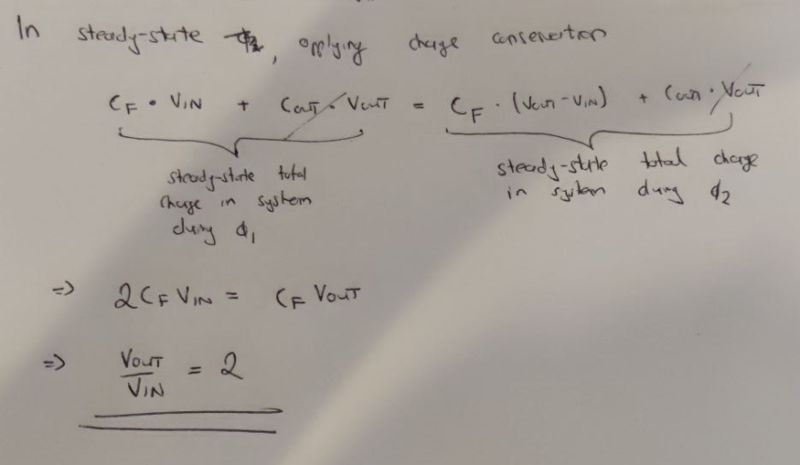 In steady-state, applying charge conservation
CF · VIN + COUT · VOUT = CF · (VOUT - VIN) + COUT · VOUT
steady-state total
charge in system
during ϕ1
steady-state total charge
in system during ϕ2
=> 2CF VIN = CF VOUT
=> VOUT/VIN = 2